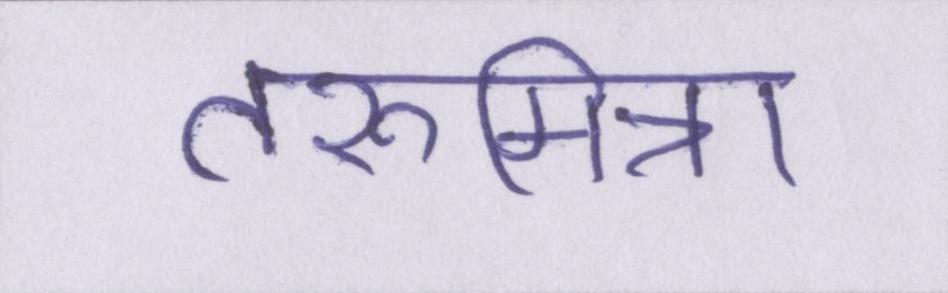 तरुमित्रा